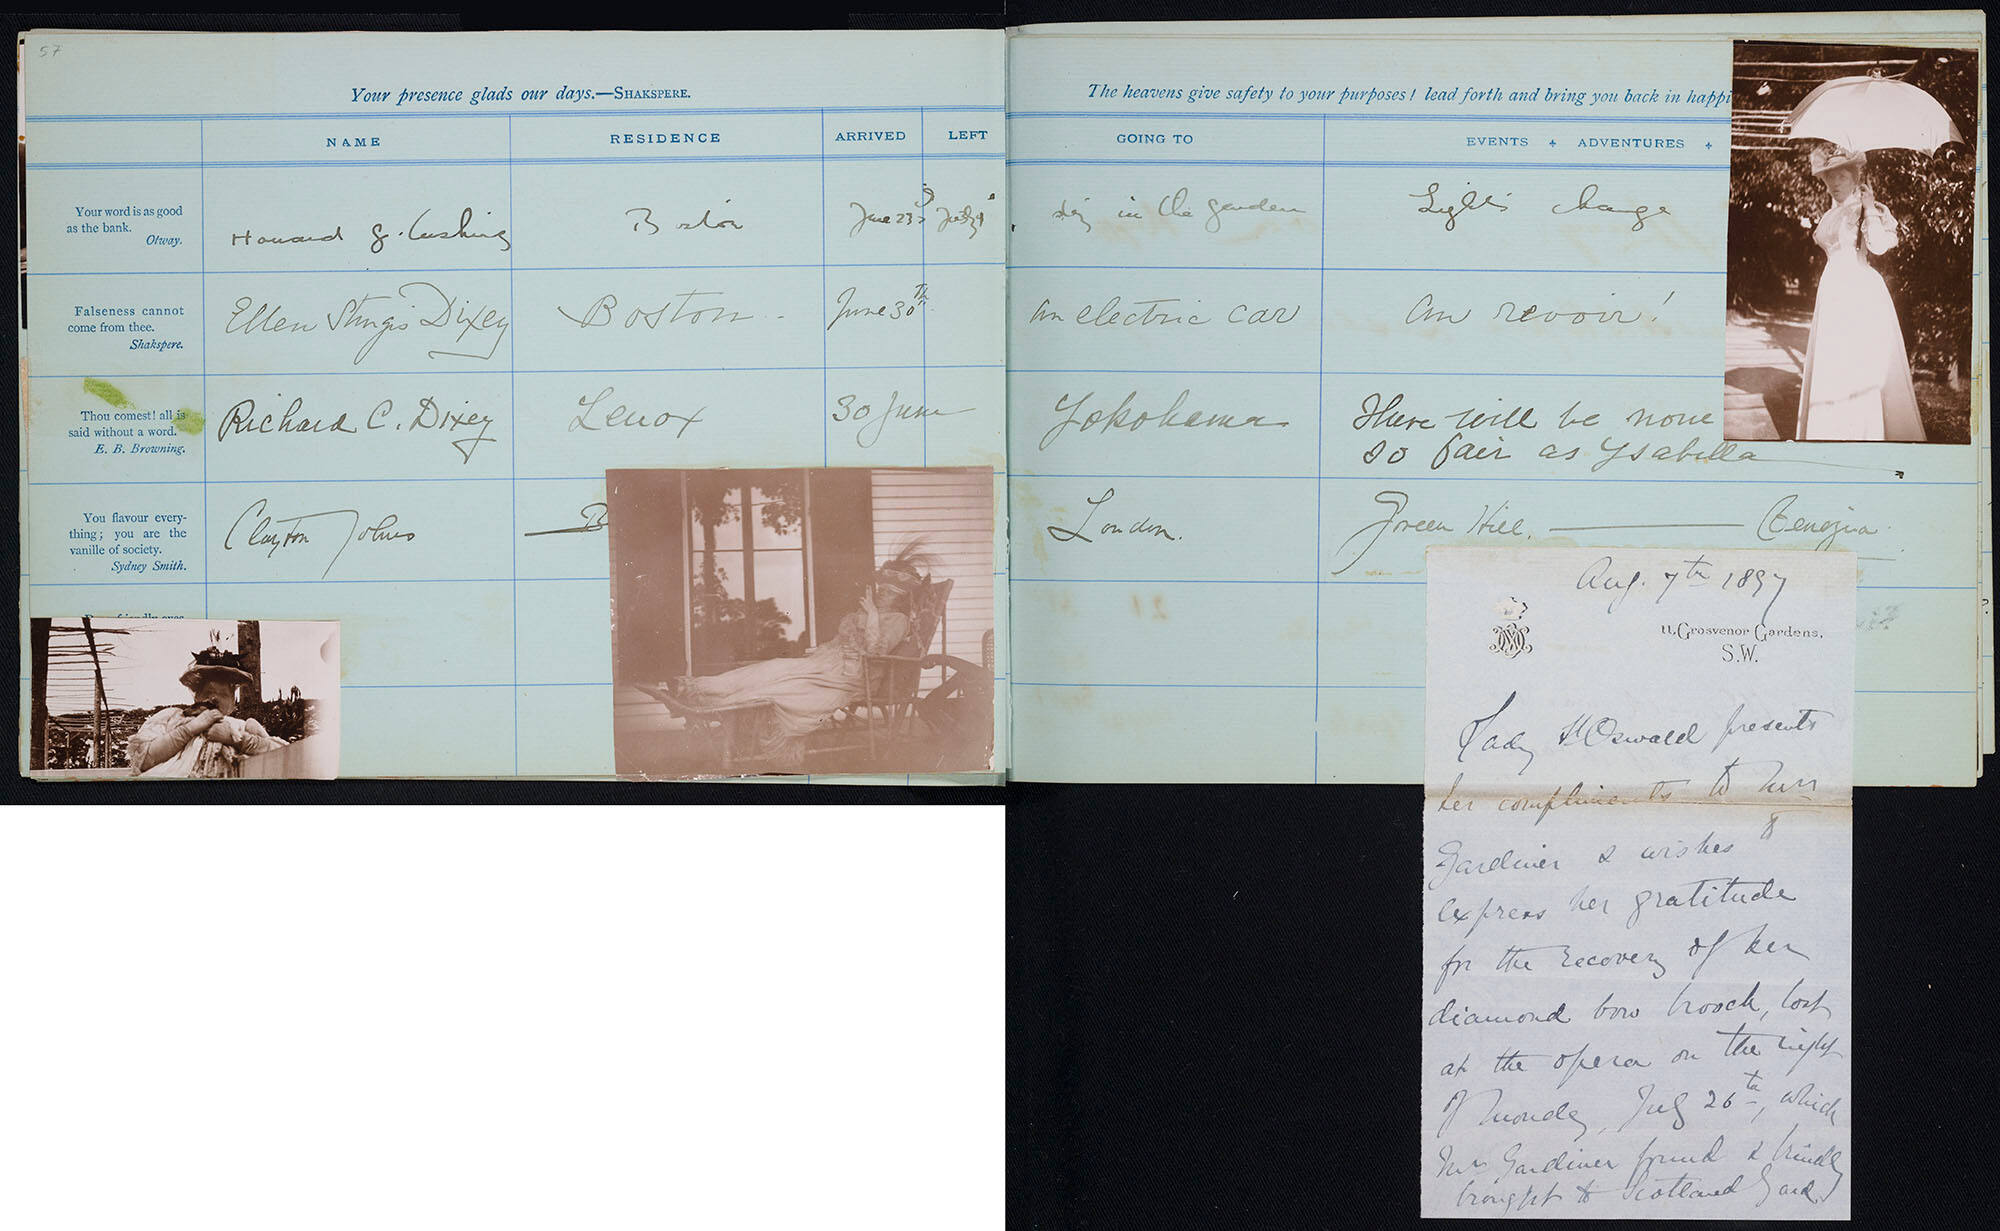 57
Your presence glads our days.—SHAKSPERE.
The heavens give safety to your purposes! lead forth and bring you back in happi
NAME RESIDENCE ARRIVED LEFT GOING TO EVENTS ADVENTURES
Your word is as good
as the bank.
Otway.
Howard G. Cushing Boston June 23 in the garden Lights change
Falseness cannot
come from thee.
Shakspere.
Ellen Sturgis Dixey Boston June 30th An electric car Au revoir!
Thou comest! all is
said without a word.
E. B. Browning.
Richard C. Dixey Lenox 30 June Yokohama There will be none
so fair as Ysabella
You flavour every-
thing; you are the
vanille of society.
Sydney Smith.
Clayton Johns B London. Green Hill.
friendly eyes
Aug. 7th 1897
11, Grosvenor Gardens,
S.W.
Lady Oswald presents
her compliments to Mrs
Gardiner & wishes to
express her gratitude
for the recovery of her
diamond bow brooch, lost
at the opera on the night
of Monday, July 26th, which
Mrs Gardiner found & kindly
brought to Scotland Yard